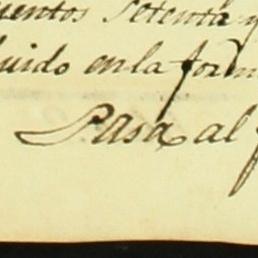 uentos setenta y
luido en la form
Pasa al f